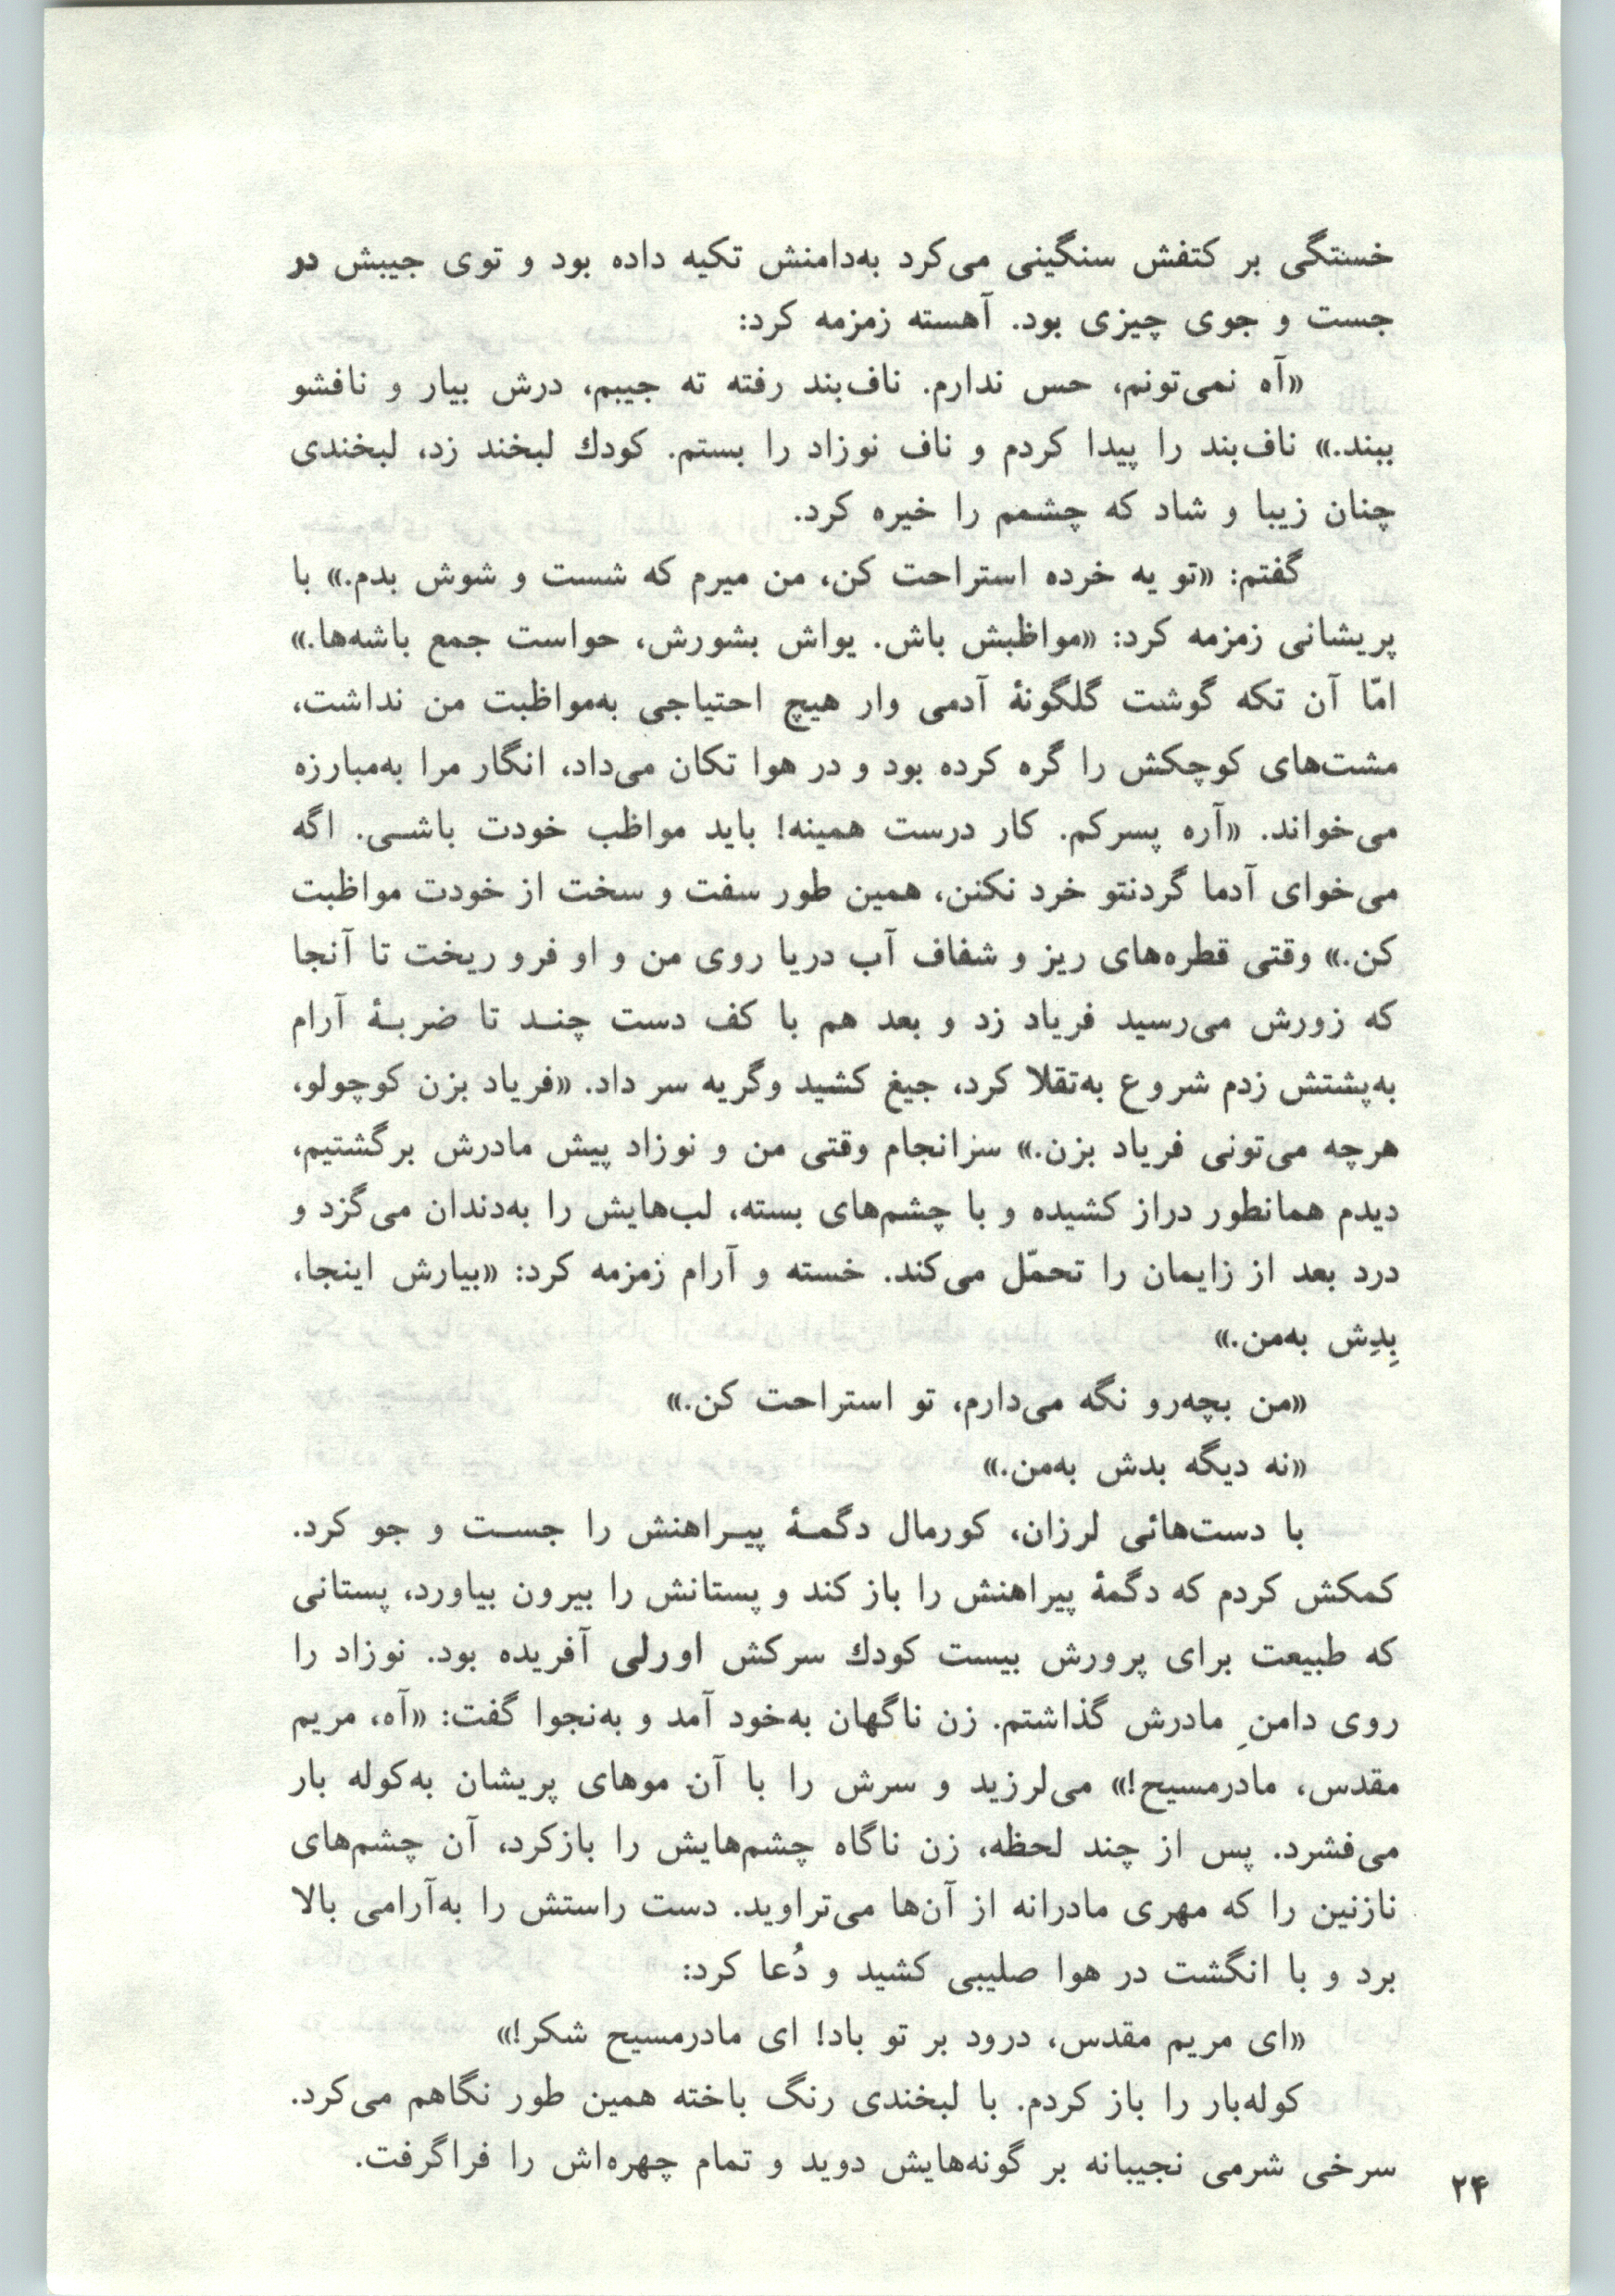 خستگی بر کتفش سنگینی می‌کرد به‌دامنش تکیه داده بود و توی جیبش در
جست و جوی چیزی بود. آهسته زمزمه کرد:
«آه نمی‌تونم، حس ندارم. ناف‌بند رفته ته جیبم، درش بیار و نافشو
ببند.» ناف‌بند را پیدا کردم و ناف نوزاد را بستم. کودك لبخند زد، لبخندی
چنان زیبا و شاد که چشمم را خیره کرد.
گفتم: «تو یه خرده استراحت کن، من میرم که شست و شوش بدم.» با
پریشانی زمزمه کرد: «مواظبش باش. یواش بشورش، حواست جمع باشه‌ها.»
امّا آن تکه گوشت گلگونهٔ آدمی وار هیچ احتیاجی به‌مواظبت من نداشت،
مشت‌های کوچکش را گره کرده بود و در هوا تکان می‌داد، انگار مرا به‌مبارزه
می‌خواند. «آره پسرکم. کار درست همینه! باید مواظب خودت باشی. اگه
می‌خوای آدما گردنتو خرد نکنن، همین طور سفت و سخت از خودت مواظبت
کن.» وقتی قطره‌های ریز و شفاف آب دریا روی من و او فرو ریخت تا آنجا
که زورش می‌رسید فریاد زد و بعد هم با کف دست چند تا ضربهٔ آرام
به‌پشتش زدم شروع به‌تقلا کرد، جیغ کشید وگریه سر داد. «فریاد بزن کوچولو،
هرچه می‌تونی فریاد بزن.» سرانجام وقتی من و نوزاد پیش مادرش برگشتیم،
دیدم همانطور دراز کشیده و با چشم‌های بسته، لب‌هایش را به‌دندان می‌گزد و
درد بعد از زایمان را تحمّل می‌کند. خسته و آرام زمزمه کرد: «بیارش اینجا،
بِدِش به‌من.»
«من بچه‌رو نگه می‌دارم، تو استراحت کن.»
«نه دیگه بدش به‌من.»
با دست‌هائی لرزان، کورمال دگمهٔ پیراهنش را جست و جو کرد.
کمکش کردم که دگمهٔ پیراهنش را باز کند و پستانش را بیرون بیاورد، پستانی
که طبیعت برای پرورش بیست کودك سرکش اورلی آفریده بود. نوزاد را
روی دامنِ مادرش گذاشتم. زن ناگهان به‌خود آمد و به‌نجوا گفت: «آه، مریم
مقدس، مادرمسیح!» می‌لرزید و سرش را با آن موهای پریشان به‌کوله بار
می‌فشرد. پس از چند لحظه، زن ناگاه چشم‌هایش را بازکرد، آن چشم‌های
نازنین را که مهری مادرانه از آن‌ها می‌تراوید. دست راستش را به‌آرامی بالا
برد و با انگشت در هوا صلیبی کشید و دُعا کرد:
«ای مریم مقدس، درود بر تو باد! ای مادرمسیح شکر!»
کوله‌بار را باز کردم. با لبخندی رنگ باخته همین طور نگاهم می‌کرد.
سرخی شرمی نجیبانه بر گونه‌هایش دوید و تمام چهره‌اش را فراگرفت.
۲۴